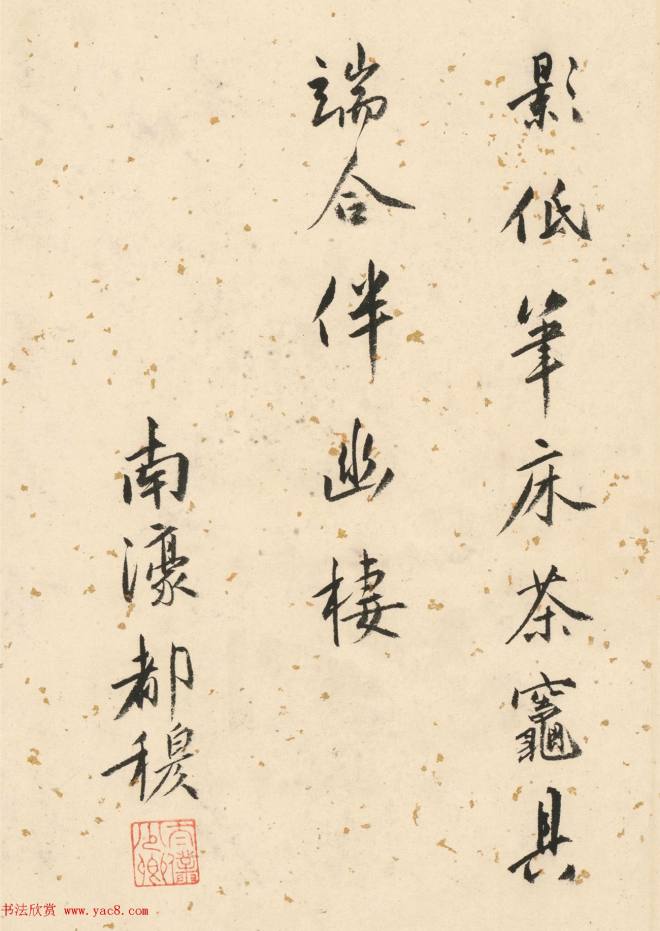 影低筆床茶竈具
端合伴幽棲
南濠都穆
太僕少卿
书法欣赏 www.yac8.com